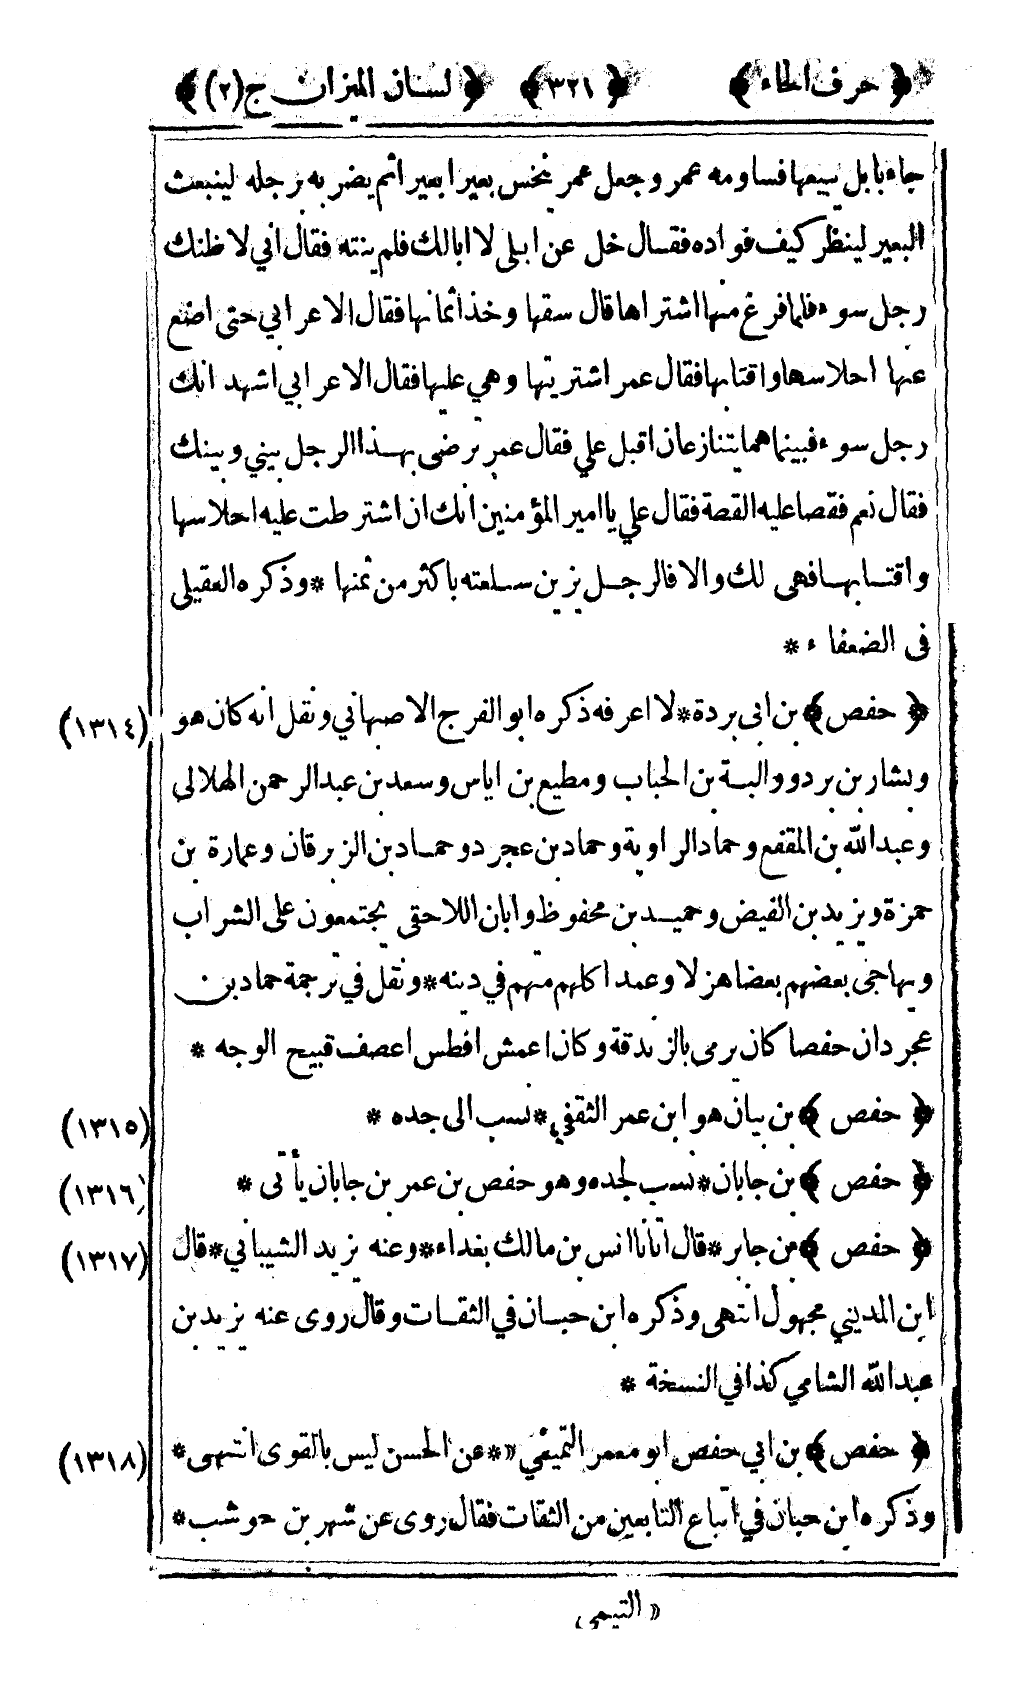 ﴿ حرف الحاء ﴾ ﴿ ٣٢١ ﴾ ﴿ لسان الميزان ج (٢) ﴾
جاء بابل يبيعها فساومه عمر وجعل عمر ينخس بعيرا بعيرا ثم يضربه برجله لينبعث
البعير لينظر كيف فواده فقال خل عن ابلى لا ابالك فلم ينته فقال اني لاظنك
رجل سوء فلما فرغ منها اشتراها قال سقها وخذ اثمانها فقال الاعرابي حتى اضع
عنها احلاسها واقتابها فقال عمر اشتريتها وهي عليها فقال الاعرابي اشهد انك
رجل سوء فبينما هما يتنازعان اقبل علي فقال عمر ترضى بهذا الرجل بيني وبينك
فقال نعم فقصا عليه القصة فقال علي يا امير المؤمنين انك ان اشترطت عليه احلاسها
واقتابها فهى لك والا فالرجل يزين سلعته باكثر من ثمنها * وذكره العقيلى
فى الضعفاء *
﴿ حفص ﴾ بن ابى بردة * لا اعرفه ذكره ابو الفرج الاصبهاني ونقل انه كان هو (١٣١٤)
وبشار بن برد ووالبة بن الحباب ومطيع بن اياس وسعد بن عبد الرحمن الهلالى
وعبد الله بن المقفع وحماد الراوية وحماد بن عجرد وحماد بن الزبرقان وعمارة بن
حمزة ويزيد بن الفيض وحميد بن محفوظ وابان اللاحقى يجتمعون على الشراب
ويهاجى بعضهم بعضا هزلا وعمدا كلهم متهم في دينه * ونقل في ترجمة حماد بن
عجرد ان حفصا كان يرمى بالزندقة وكان اعمش افطس اعصف قبيح الوجه *
﴿ حفص ﴾ بن بيان هو ابن عمر الثقفي * نسب الى جده * (١٣١٥)
﴿ حفص ﴾ بن جابان * نسب لجده وهو حفص بن عمر بن جابان يأتى * (١٣١٦)
﴿ حفص ﴾ بن جابر * قال اتانا انس بن مالك بغداء * وعنه يزيد الشيباني * قال (١٣١٧)
ابن المديني مجهول انتهى وذكره ابن حبان في الثقات وقال روى عنه يزيد بن
عبد الله الشامي كذا في النسخة *
﴿ حفص ﴾ بن ابي حفص ابو معمر التميمي « * عن الحسن ليس بالقوى انتهى * (١٣١٨)
وذكره ابن حبان في اتباع التابعين من الثقات فقال روى عن شهر بن حوشب *
« التيمى